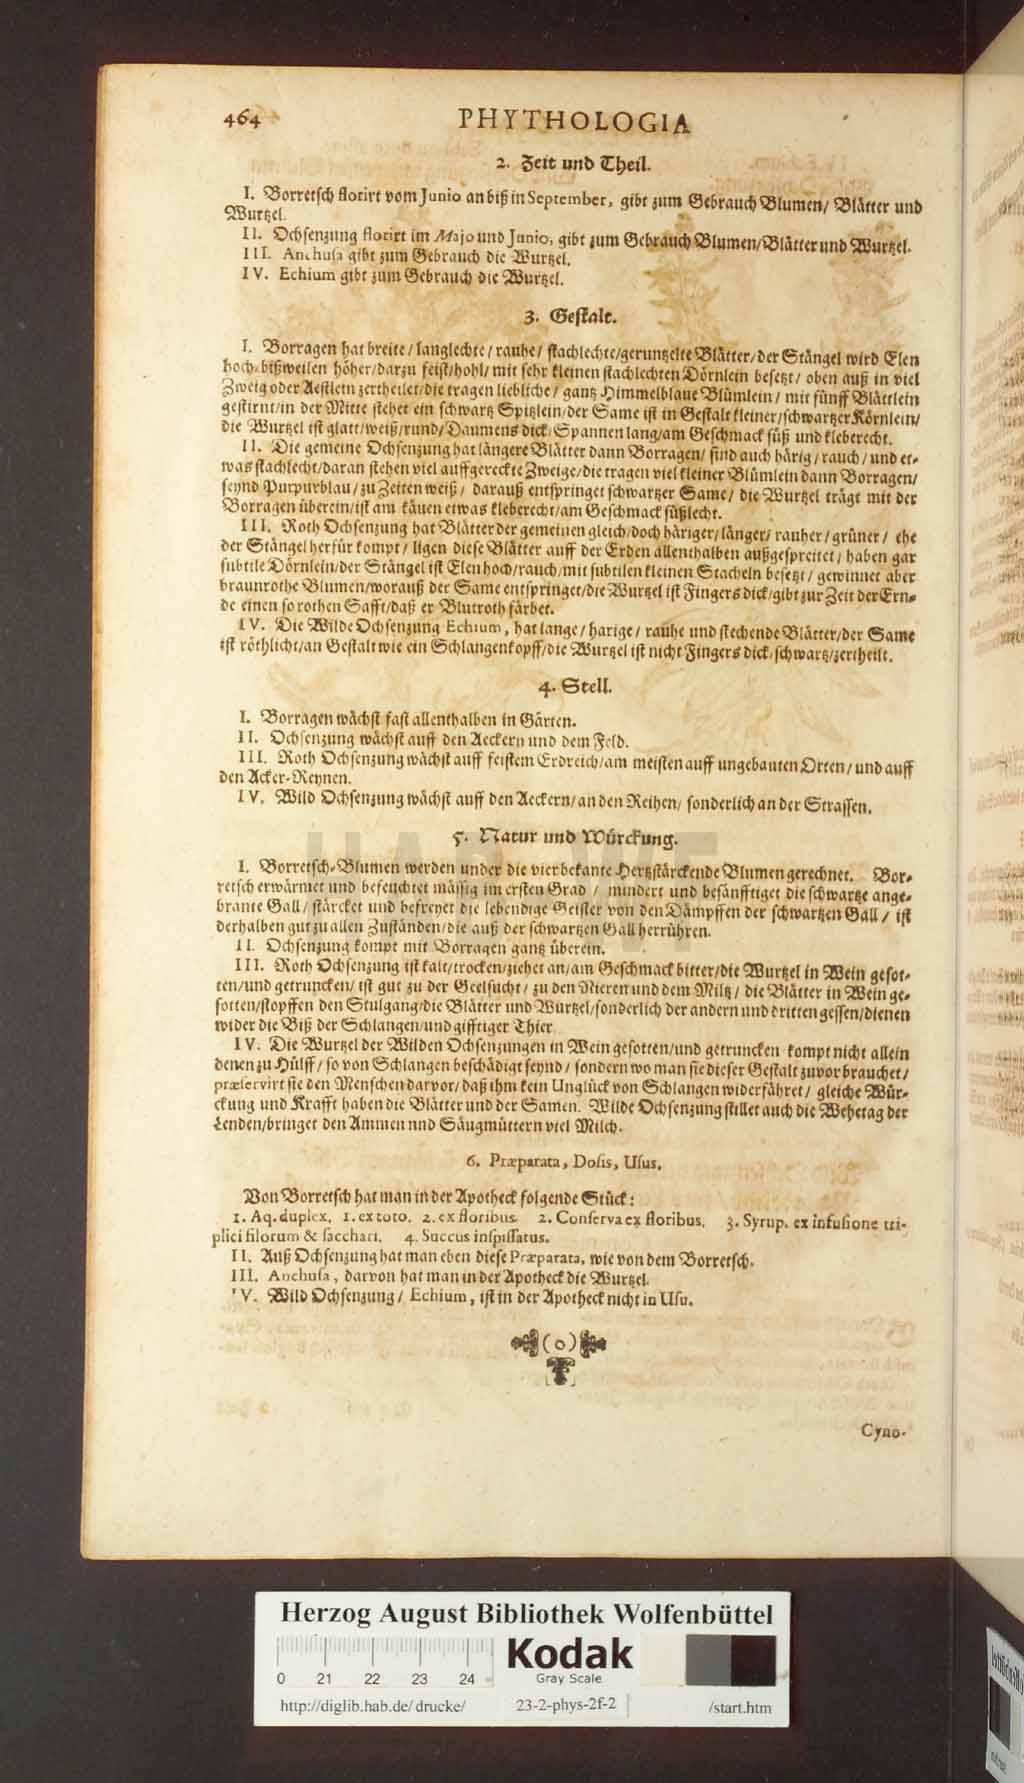 464
PHYTHOLOGIA
2. Zeit und Theil.
I. Borretsch florirt vom Junio an biß in September, gibt zum Gebrauch Blumen/ Blätter und
Wurtzel.
II. Ochsenzung florirt im Majo und Junio, gibt zum Gebrauch Blumen/Blätter und Wurtzel.
III. Anchusa gibt zum Gebrauch die Wurtzel.
IV. Echium gibt zum Gebrauch die Wurtzel.
3. Gestalt.
I. Borragen hat breite/ langlechte/ rauhe/ stachlechte/geruntzelte Blätter/der Stängel wird Elen
hoch/bißweilen höher/darzu feist/hohl/ mit sehr kleinen stachlechten Dörnlein besetzt/ oben auß in viel
Zweig oder Aestlein zertheilet/die tragen liebliche/ gantz Himmelblaue Blümlein/ mit fünff Blättlein
gestirnt/in der Mitte stehet ein schwartz Spitzlein/der Same ist in Gestalt kleiner/schwartzer Körnlein/
die Wurtzel ist glatt/weiß/rund/Daumens dick/Spannen lang/am Geschmack süß und kleberecht.
II. Die gemeine Ochsenzung hat längere Blätter dann Borragen/ sind auch härig/rauch/und et-
was stachlecht/daran stehen viel auffgereckte Zweige/die tragen viel kleiner Blümlein dann Borragen/
seynd Purpurblau/zu Zeiten weiß/ darauß entspringet schwartzer Same/ die Wurtzel trägt mit der
Borragen überein/ist am käuen etwas kleberecht/am Geschmack süßlecht.
III. Roth Ochsenzung hat Blätter der gemeinen gleich/doch häriger/länger/rauher/grüner/ ehe
der Stängel herfür kompt/ ligen diese Blätter auff der Erden allenthalben außgespreitet/ haben gar
subtile Dörnlein/der Stängel ist Elen hoch/rauch/mit subtilen kleinen Stacheln besetzt/ gewinnet aber
braunrothe Blumen/worauß der Same entspringet/die Wurtzel ist Fingers dick/gibt zur Zeit der Ern-
de einen so rothen Safft/daß er Blutroth färbet.
IV. Die Wilde Ochsenzung Echium, hat lange/ harige/ rauhe und stechende Blätter/der Same
ist röthlicht/an Gestalt wie ein Schlangenkopff/die Wurtzel ist nicht Fingers dick/schwartz/zertheilt.
4. Stell.
I. Borragen wächst fast allenthalben in Gärten.
II. Ochsenzung wächst auff den Aeckern und dem Feld.
III. Roth Ochsenzung wächst auff feistem Erdreich/am meisten auff ungebauten Orten/und auff
den Acker-Reynen.
IV. Wild Ochsenzung wächst auff den Aeckern/an den Reihen/ sonderlich an der Strassen.
5. Natur und Würckung.
I. Borretsch-Blumen werden under die vier bekante Hertzstärckende Blumen gerechnet. Bor-
retsch erwärmet und befeuchtet mässig im ersten Grad/ mindert und besänfftiget die schwartze ange-
brante Gall/ stärcket und befreyet die lebendige Geister von den Dämpffen der schwartzen Gall/ ist
derhalben gut zu allen Zuständen/die auß der schwartzen Gall herrühren.
II. Ochsenzung kompt mit Borragen gantz überein.
III. Roth Ochsenzung ist kalt/trocken/ziehet an/am Geschmack bitter/die Wurtzel in Wein gesot-
ten/und getruncken/ ist gut zu der Geelsucht/ zu den Nieren und dem Miltz/ die Blätter in Wein ge-
sotten/stopffen den Stulgang/die Blätter und Wurtzel/sonderlich der andern und dritten gessen/dienen
wider die Biß der Schlangen/und gifftiger Thier.
IV. Die Wurtzel der Wilden Ochsenzungen in Wein gesotten/und getruncken kompt nicht allein
denen zu Hülff/ so von Schlangen beschädigt seynd/ sondern wo man sie dieser Gestalt zuvor brauchet/
præservirt sie den Menschen darvor/daß ihm kein Unglück von Schlangen widerfähret/ gleiche Wür-
ckung und Krafft haben die Blätter und der Samen. Wilde Ochsenzung stillet auch die Wehetag der
Lenden/bringet den Ammen nnd Säugmüttern viel Milch.
6. Præparata, Dosis, Usus.
Von Borretsch hat man in der Apotheck folgende Stück:
1. Aq. duplex. 1. ex toto. 2. ex floribus. 2. Conserva ex floribus. 3. Syrup. ex infusione tri-
plici filorum & sacchari. 4. Succus inspissatus.
II. Auß Ochsenzung hat man eben diese Præparata, wie von dem Borretsch.
III. Anchusa, darvon hat man in der Apotheck die Wurtzel.
IV. Wild Ochsenzung/ Echium, ist in der Apotheck nicht in Usu.
(o)
Cyno-
HAB
Herzog August Bibliothek Wolfenbüttel
0 21 22 23 24
Kodak
Gray Scale
http://diglib.hab.de/drucke/ 23-2-phys-2f-2 /start.htm